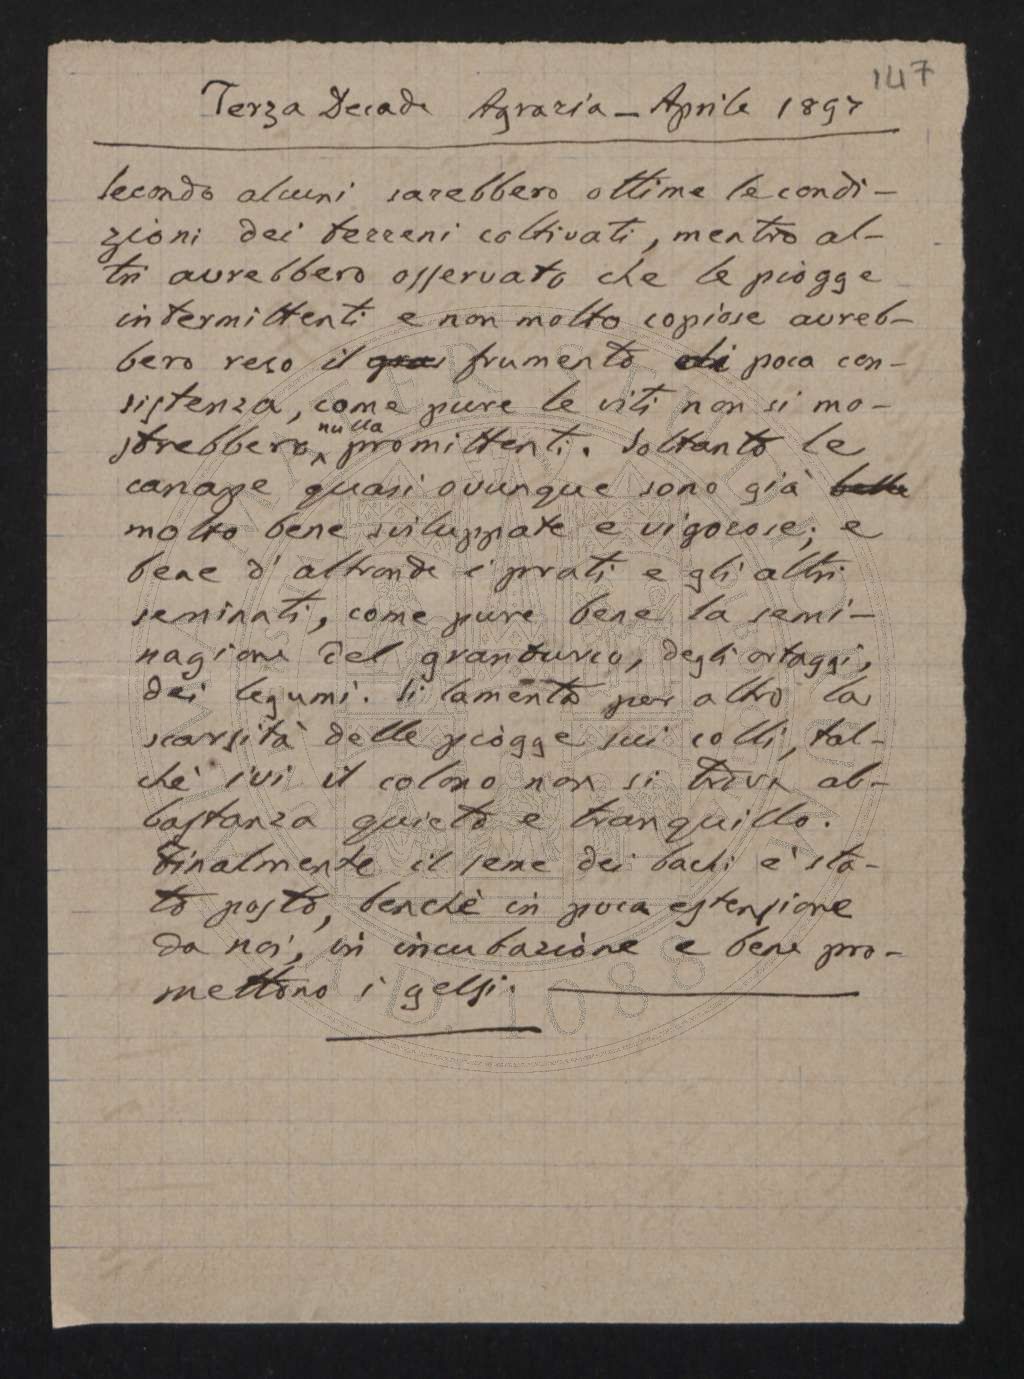 147
Terza Decade Agraria – Aprile 1897
Secondo alcuni sarebbero ottime le condi-
zioni dei terreni coltivati, mentre al-
tri avrebbero osservato che le piogge
intermittenti e non molto copiose avreb-
bero reso il gra frumento di poca con-
sistenza, come pure le viti non si mo-
strebbero nulla promittenti. Soltanto le
canape quasi ovunque sono già belle
molto bene sviluppate e vigorose; e
bene d'altronde i prati e gli altri
seminati, come pure bene la semi-
nagione del granturco, degli ortaggi,
dei legumi. Si lamenta per altro la
scarsità delle piogge sui colli, tal-
chè ivi il colono non si trova ab-
bastanza quieto e tranquillo.
Finalmente il seme dei bachi è sta-
to posto, benchè in poca estensione
da noi, in incubazione e bene pro-
mettono i gelsi.
A.D. 1088